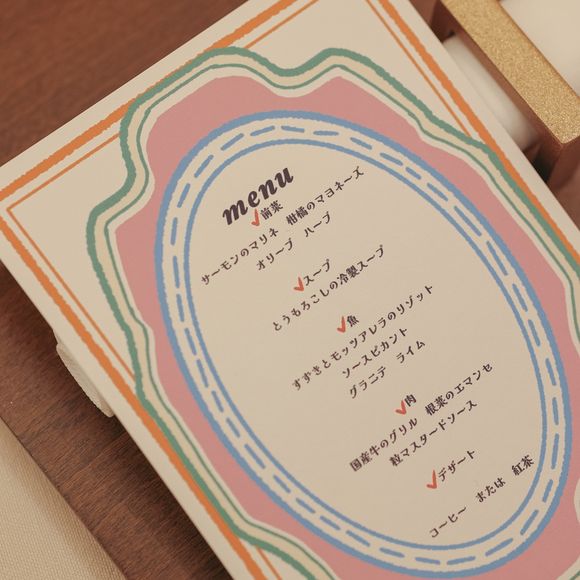 menu
前菜
サーモンのマリネ 柑橘のマヨネーズ
オリーブ ハーブ
スープ
とうもろこしの冷製スープ
魚
すずきとモッツアレラのリゾット
ソースピカント
グラニテ ライム
肉
国産牛のグリル 根菜のエマンセ
粒マスタードソース
デザート
コーヒー または 紅茶